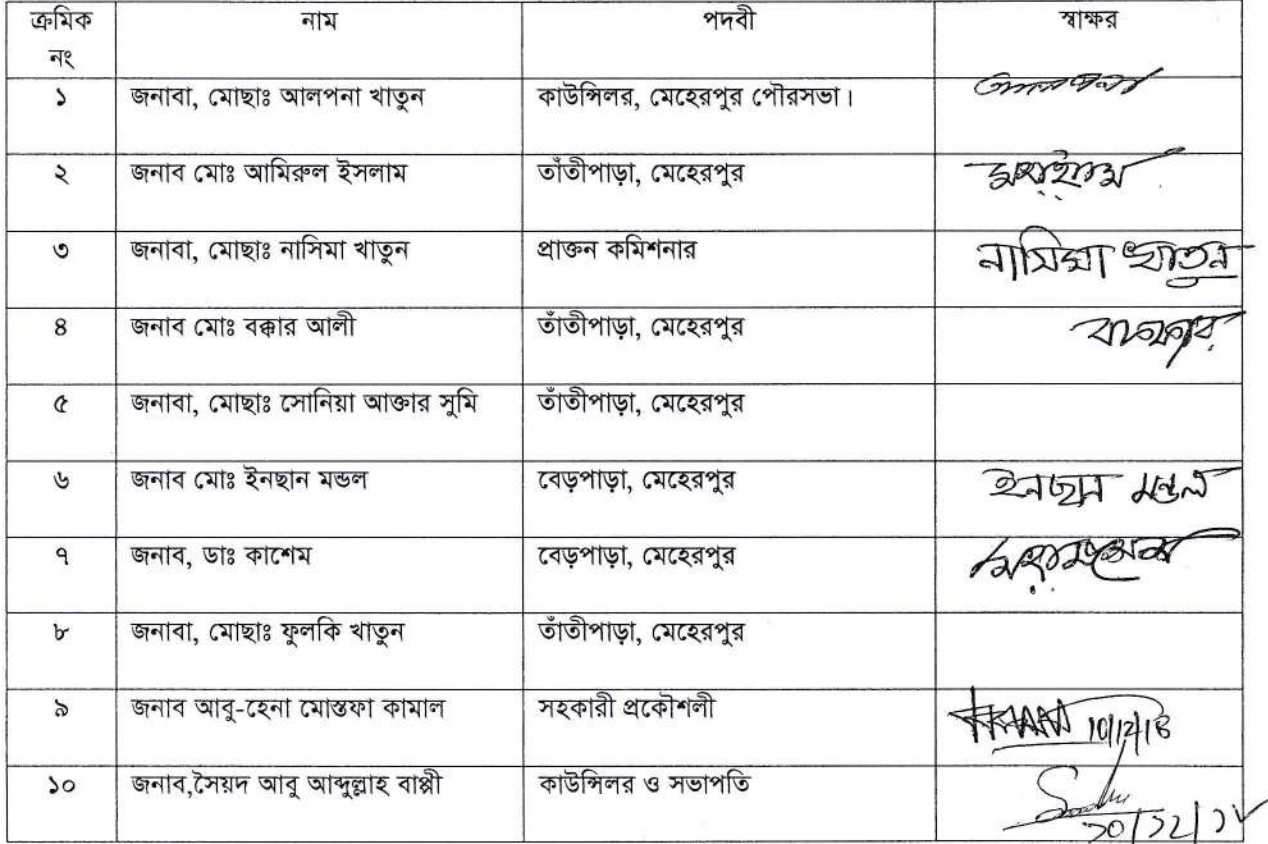 ক্রমিক নং নাম পদবী স্বাক্ষর
১ জনাবা, মোছাঃ আলপনা খাতুন কাউন্সিলর, মেহেরপুর পৌরসভা।
২ জনাব মোঃ আমিরুল ইসলাম তাঁতীপাড়া, মেহেরপুর
৩ জনাবা, মোছাঃ নাসিমা খাতুন প্রাক্তন কমিশনার নাসিমা খাতুন
৪ জনাব মোঃ বক্কার আলী তাঁতীপাড়া, মেহেরপুর
৫ জনাবা, মোছাঃ সোনিয়া আক্তার সুমি তাঁতীপাড়া, মেহেরপুর
৬ জনাব মোঃ ইনছান মন্ডল বেড়পাড়া, মেহেরপুর ইনছান মন্ডল
৭ জনাব, ডাঃ কাশেম বেড়পাড়া, মেহেরপুর
৮ জনাবা, মোছাঃ ফুলকি খাতুন তাঁতীপাড়া, মেহেরপুর
৯ জনাব আবু-হেনা মোস্তফা কামাল সহকারী প্রকৌশলী 10/12/18
১০ জনাব,সৈয়দ আবু আব্দুল্লাহ বাপ্পী কাউন্সিলর ও সভাপতি ১০/১২/১৮